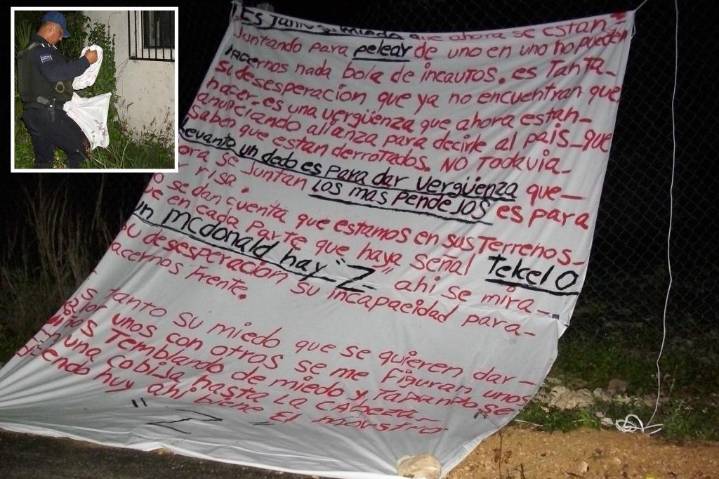 Es Tanto su miedo que ahora se estan-
Juntando para pelear de uno en uno no pueden
hacernos nada bola de incautos. es Tanta-
su desesperacion que ya no encuentran que
hacer. es una vergüenza que ahora estan-
anunciando alianza para decirle al pais que
saben que estan derrotados. No Todavia-
Levanto un dedo es para dar vergüenza que-
ora se Juntan Los mas Pendejos es para
risa.
o se dan cuenta que estamos en sus Terrenos-
ue en cada Parte que haya señal Telcel O
un mcdonald hay "Z" ahi se mira-
su desesperacion su incapacidad para-
acernos Frente.
s Tanto su miedo que se quieren dar-
unos con otros se me Figuran unos
Temblando de miedo y Tapandose
on una cobija hasta La cabeza-
iciendo huy ahi biene El moustro
"Z"